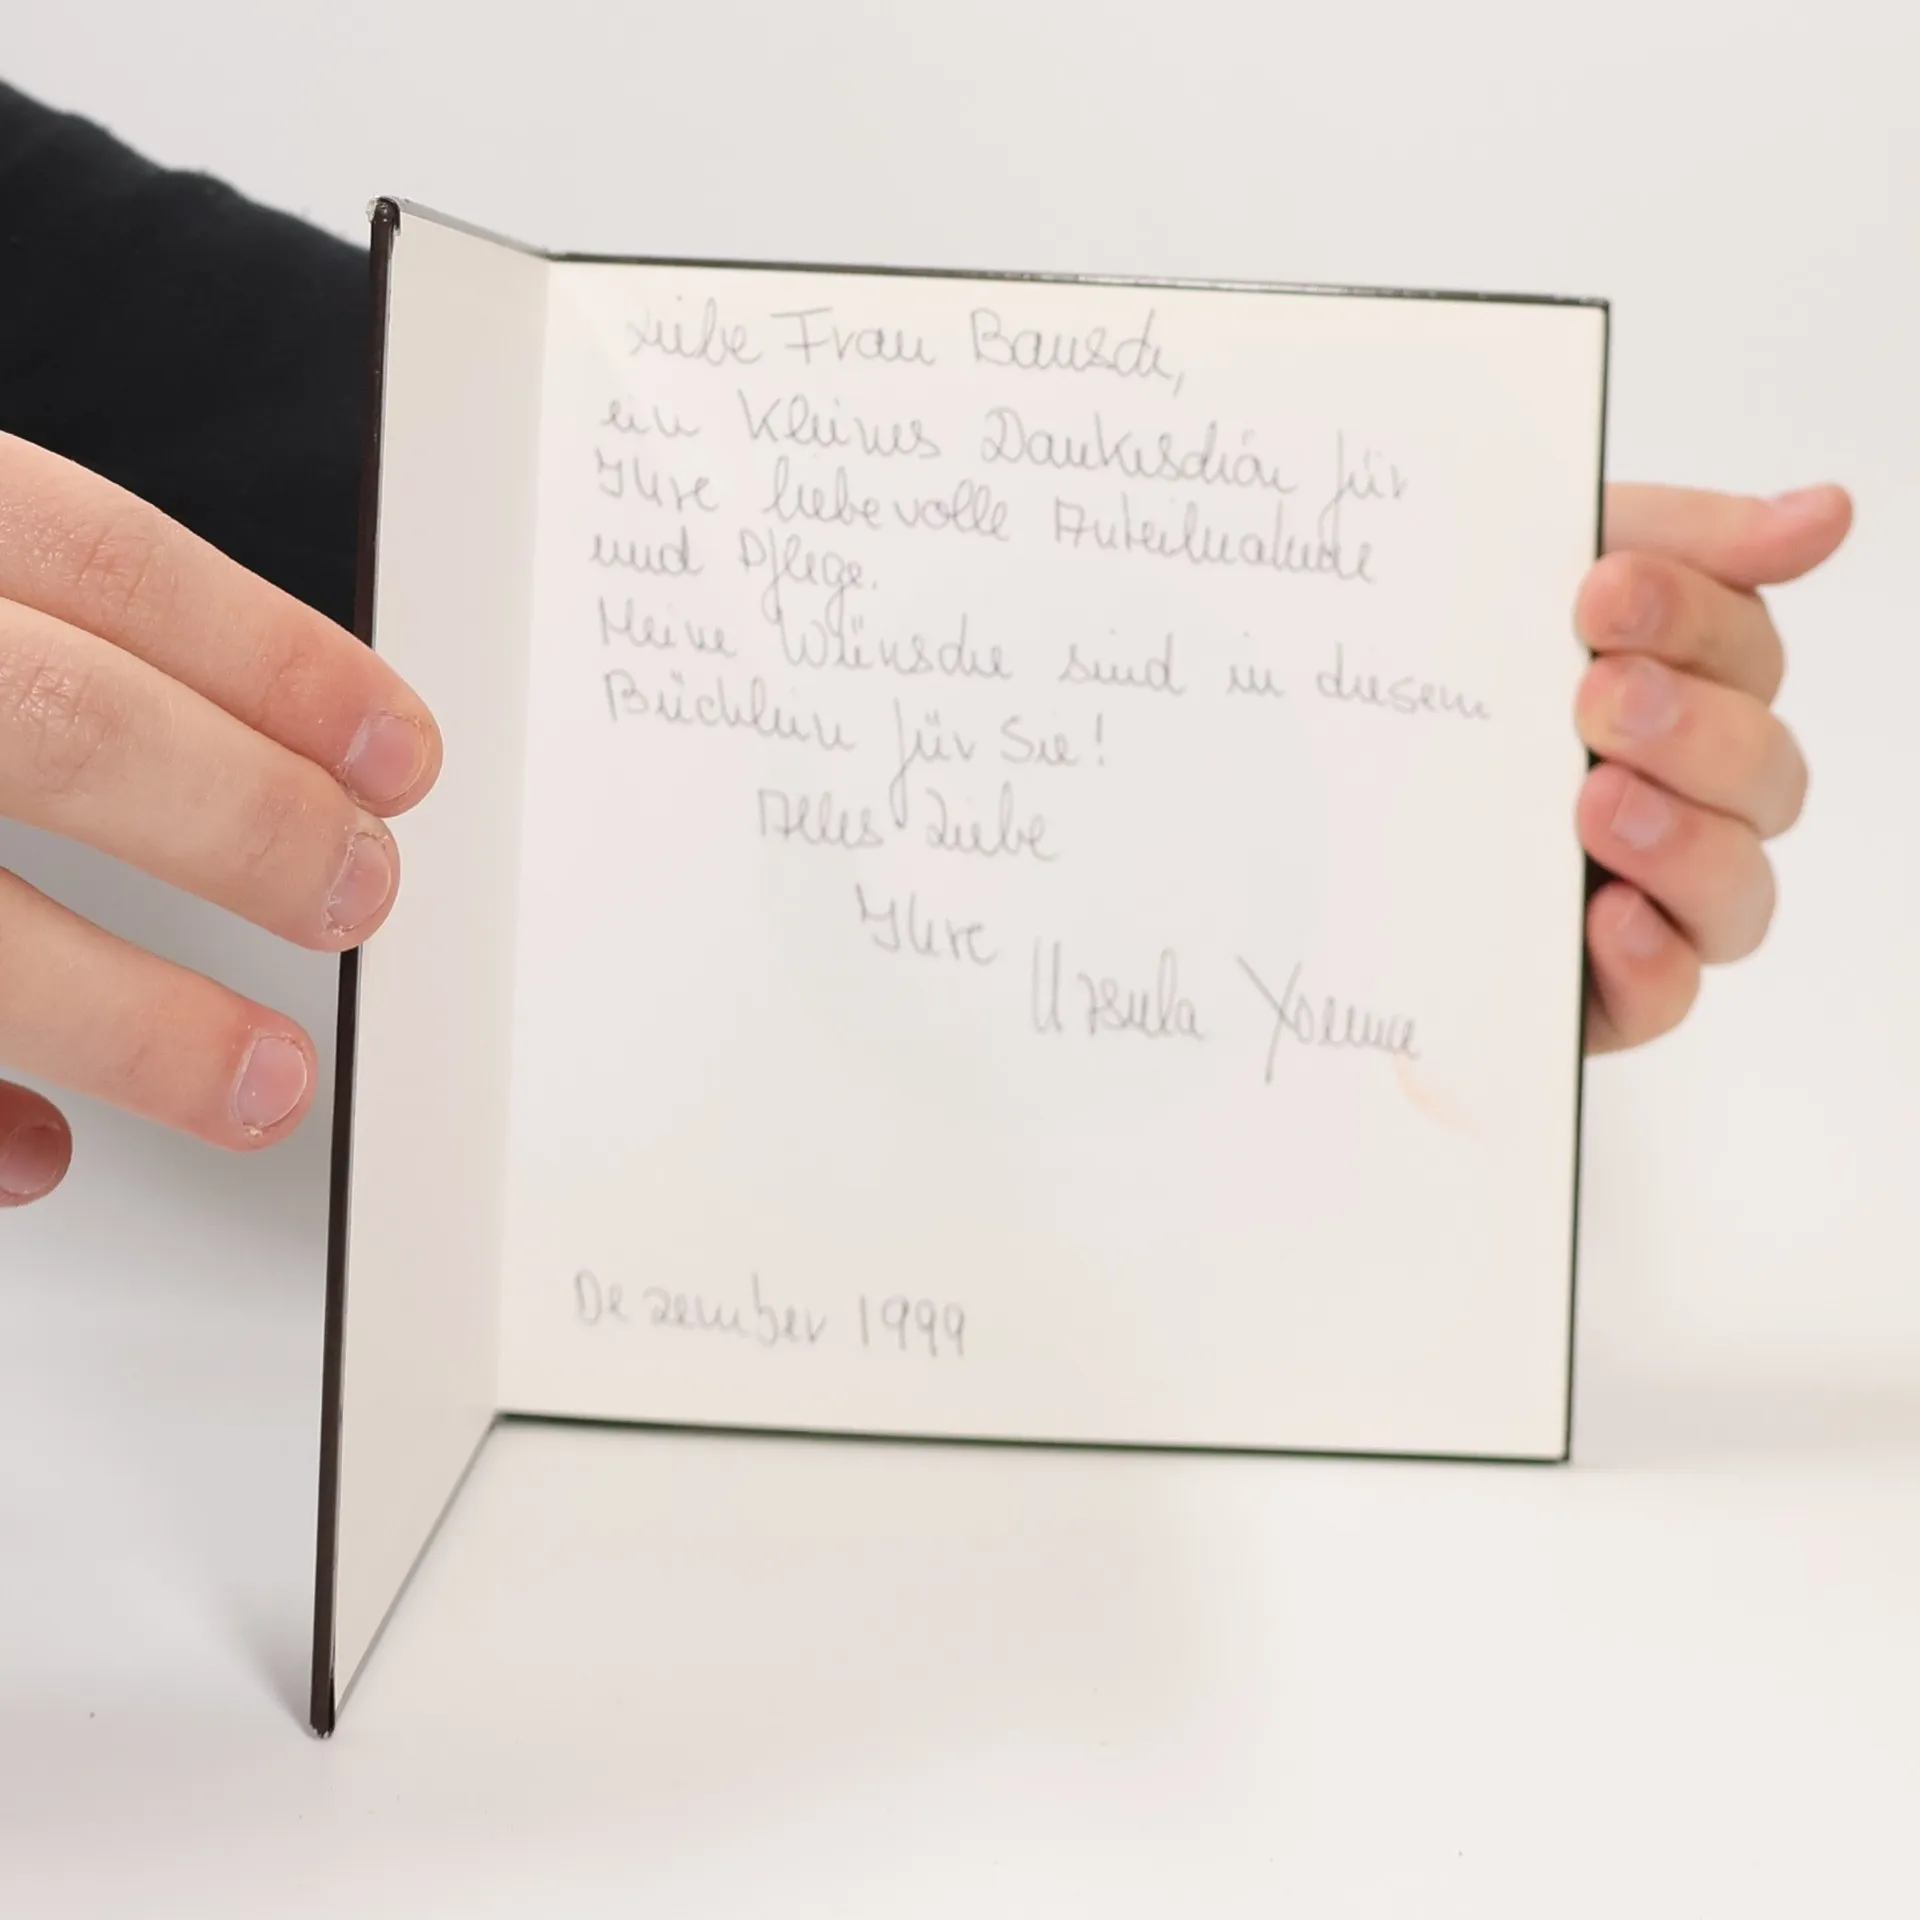 Liebe Frau Bausch,
ein kleines Dankeschön für
Ihre liebevolle Anteilnahme
und Pflege.
Meine Wünsche sind in diesem
Büchlein für Sie!
Alles Liebe
Ihre
Ursula
Dezember 1999